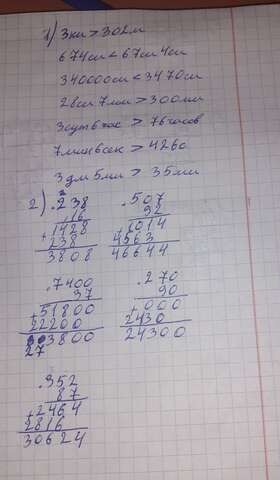 1) 3км > 302м
674см < 67см 4см
340000см < 3470см
28см 7мм > 300мм
3сут 6час > 76часов
7мин 6сек > 426с
3дм 5мм > 35мм
2) 238
16
+1428
238
3808
507
92
+1014
4563
46644
7400
37
+51800
22200
273800
270
90
+000
2430
24300
352
87
+2464
2816
30624